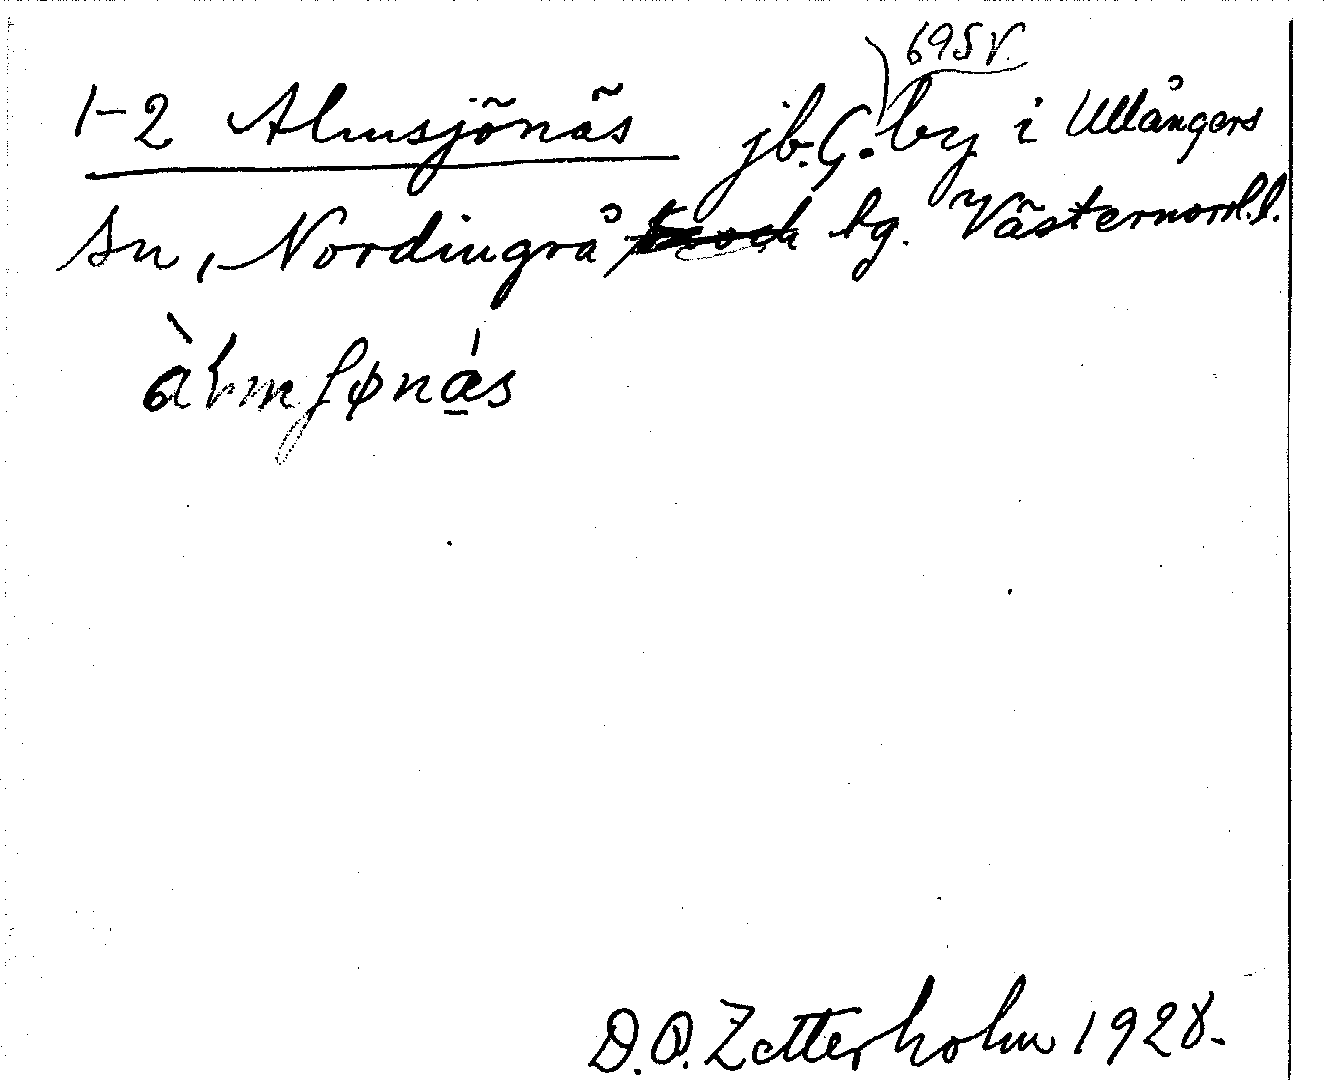 695 V.
1-2 Almsjönäs jb. G. by i Ullångers
sn, Nordingrå tg. Västernorrl.l.
D.O. Zetterholm 1928.